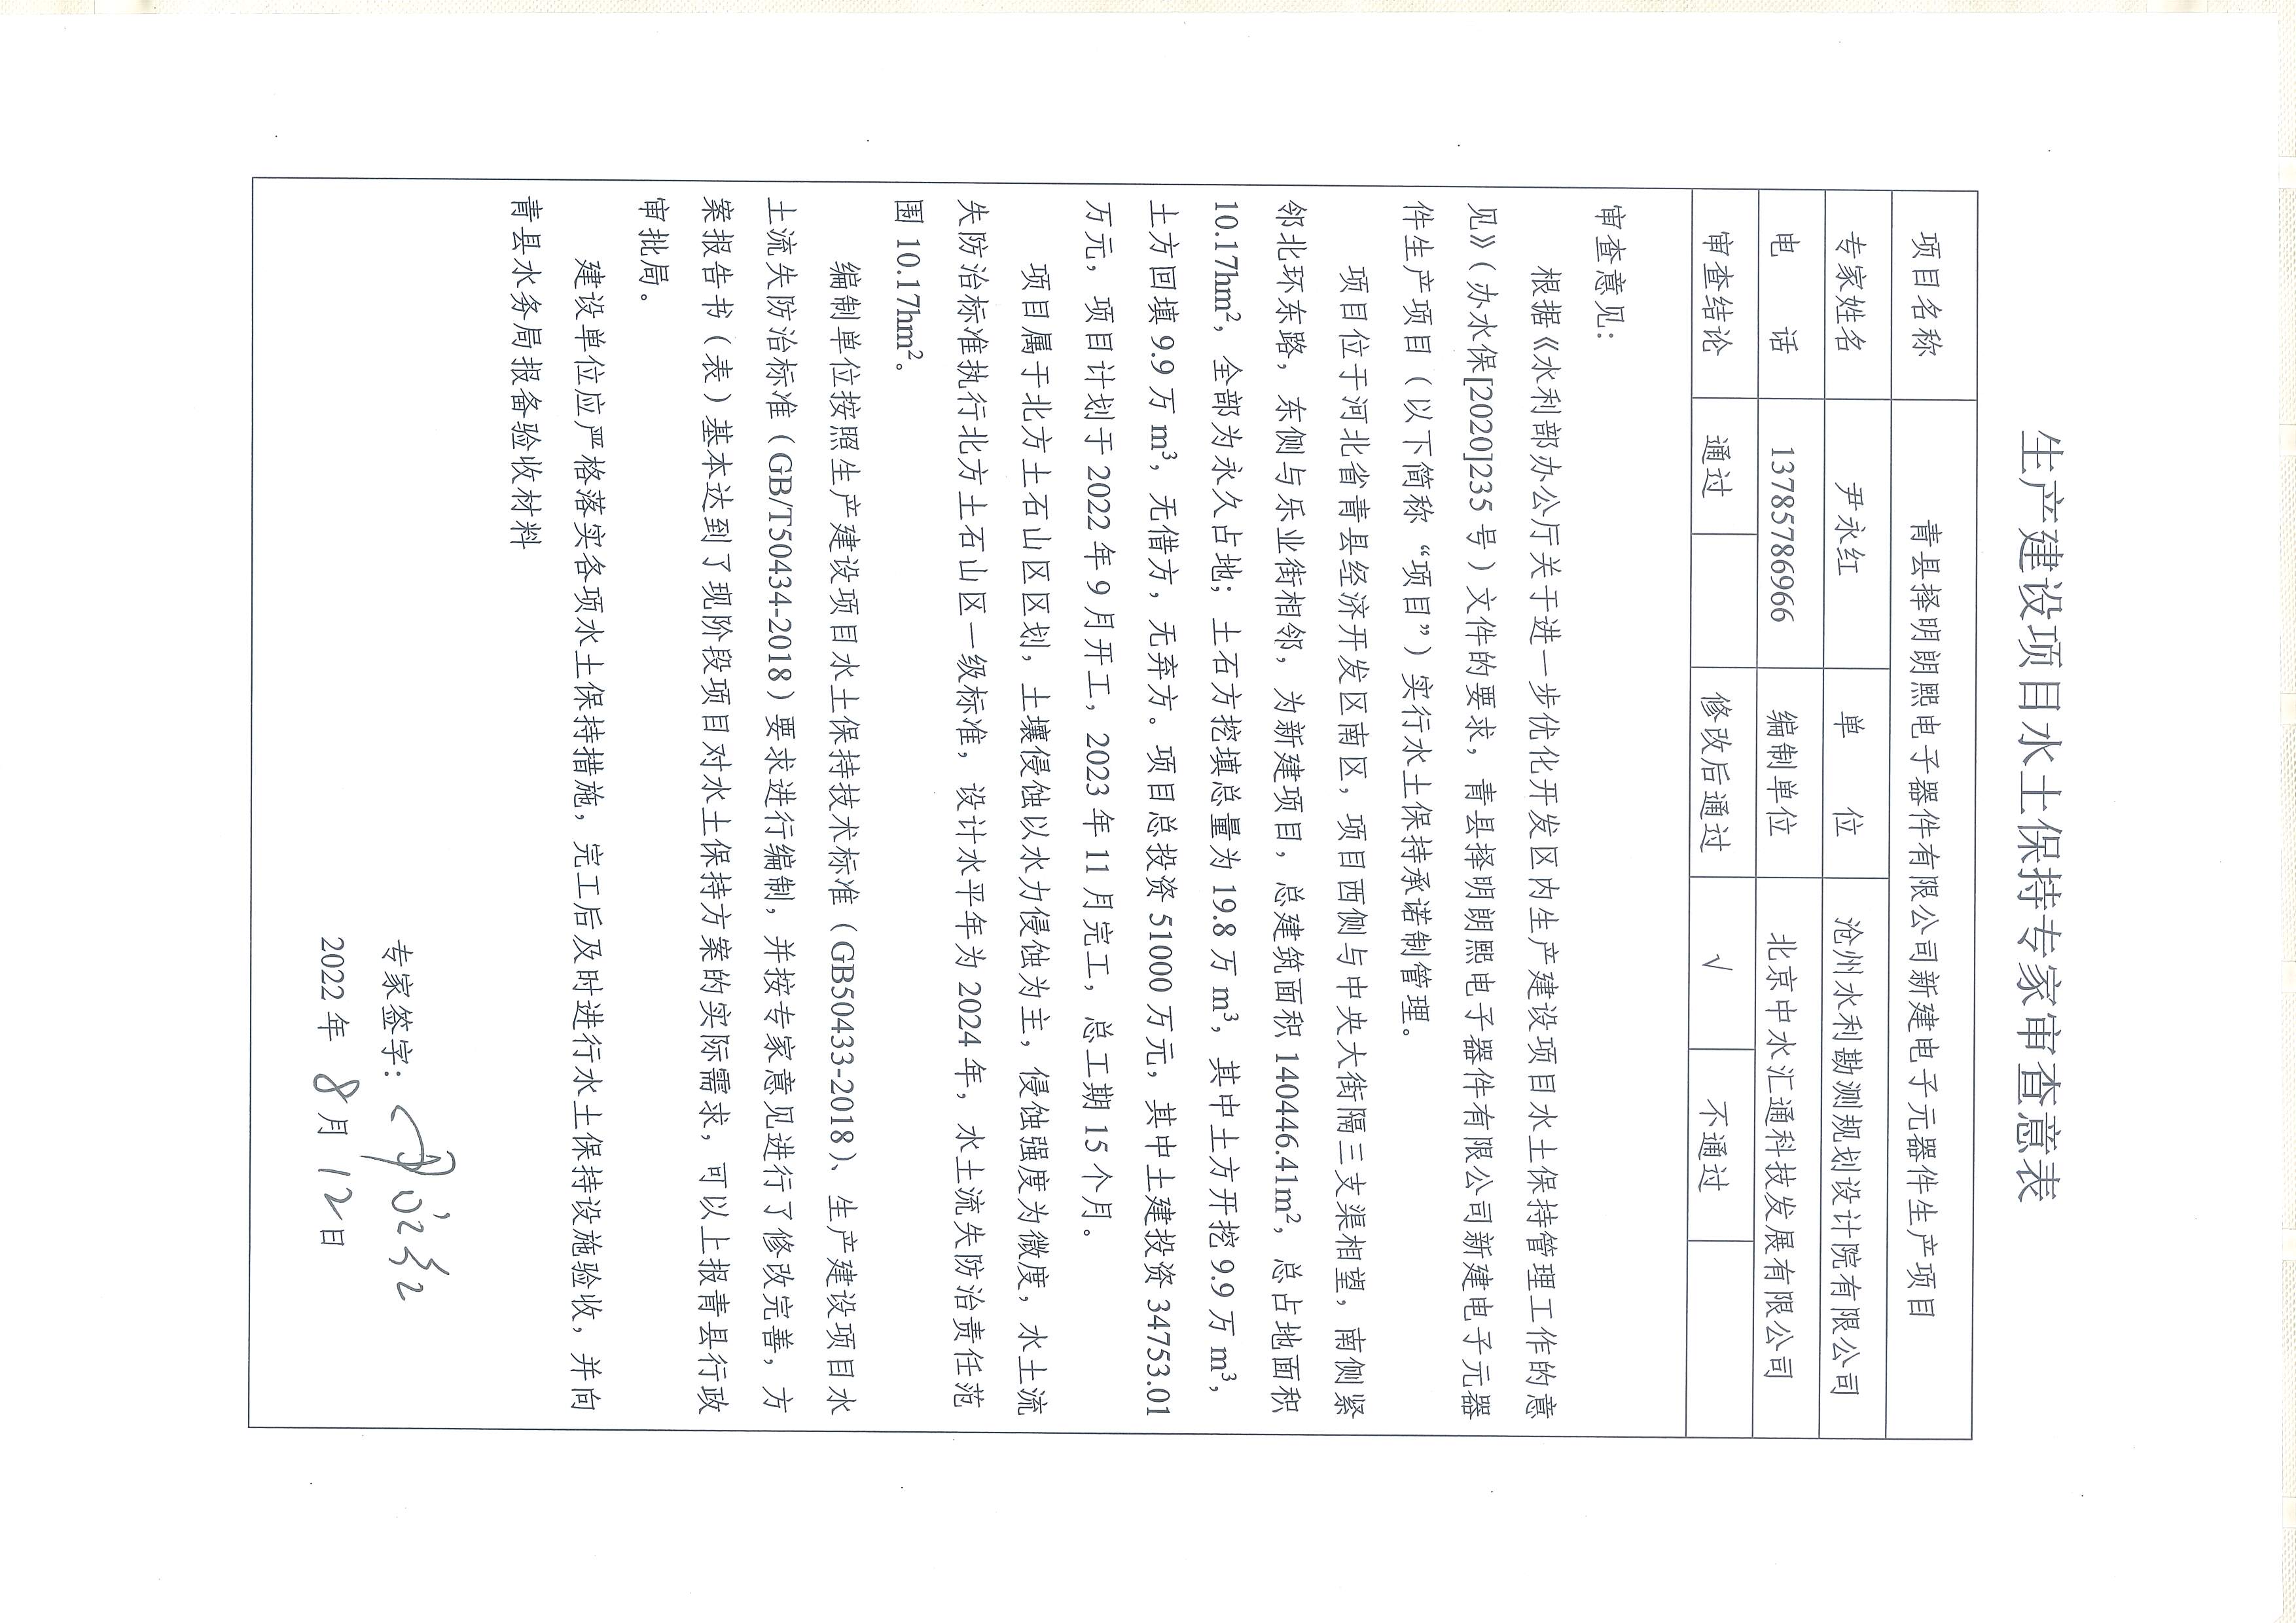 生产建设项目水土保持专家审查意表
项目名称 青县择明朗熙电子器件有限公司新建电子元器件生产项目
专家姓名 尹永红 单 位 沧州水利勘测规划设计院有限公司
电 话 13785786966 编制单位 北京中水汇通科技发展有限公司
审查结论 通过 修改后通过 √ 不通过
审查意见：
根据《水利部办公厅关于进一步优化开发区内生产建设项目水土保持管理工作的意
见》（办水保[2020]235 号）文件的要求，青县择明朗熙电子器件有限公司新建电子元器
件生产项目（以下简称“项目”）实行水土保持承诺制管理。
项目位于河北省青县经济开发区南区，项目西侧与中央大街隔三支渠相望，南侧紧
邻北环东路，东侧与乐业街相邻，为新建项目，总建筑面积 140446.41m²，总占地面积
10.17hm²，全部为永久占地；土石方挖填总量为 19.8 万 m³，其中土方开挖 9.9 万 m³，
土方回填 9.9 万 m³，无借方，无弃方。项目总投资 51000 万元，其中土建投资 34753.01
万元，项目计划于 2022 年 9 月开工，2023 年 11 月完工，总工期 15 个月。
项目属于北方土石山区区划，土壤侵蚀以水力侵蚀为主，侵蚀强度为微度，水土流
失防治标准执行北方土石山区一级标准，设计水平年为 2024 年，水土流失防治责任范
围 10.17hm²。
编制单位按照生产建设项目水土保持技术标准（GB50433-2018）、生产建设项目水
土流失防治标准（GB/T50434-2018）要求进行编制，并按专家意见进行了修改完善，方
案报告书（表）基本达到了现阶段项目对水土保持方案的实际需求，可以上报青县行政
审批局。
建设单位应严格落实各项水土保持措施，完工后及时进行水土保持设施验收，并向
青县水务局报备验收材料
专家签字：尹永红
2022 年 8 月 12 日